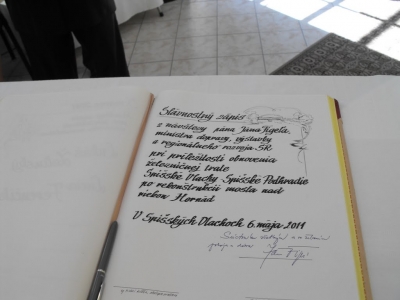 Slávnostný zápis
z návštevy pána Jána Figeľa,
ministra dopravy, výstavby
a regionálneho rozvoja SR
pri príležitosti obnovenia
železničnej trate
Spišské Vlachy - Spišské Podhradie
po rekonštrukcii mosta nad
riekou Hornád
V Spišských Vlachoch 6. mája 2011